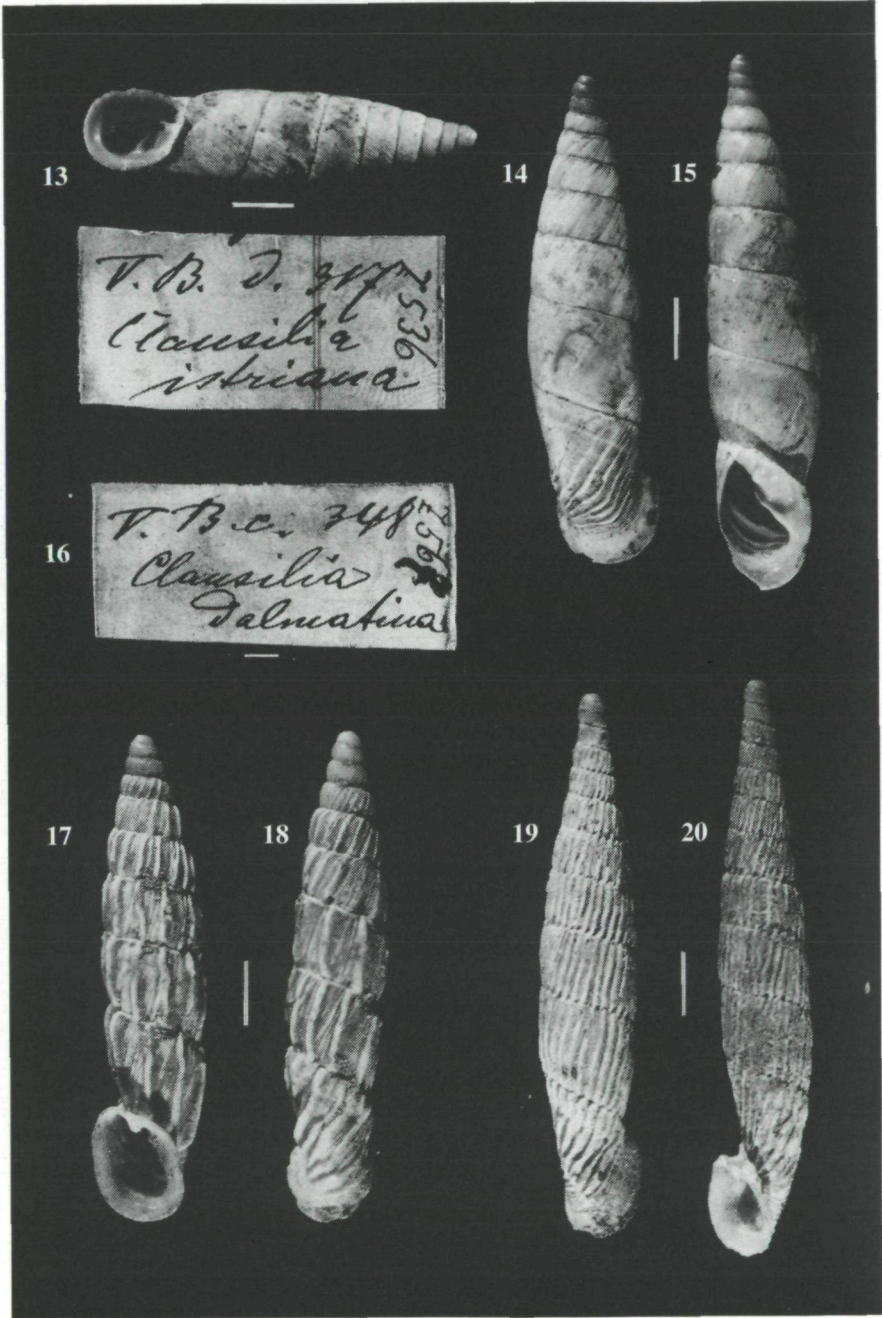 13
14
15
T. B. d. 317
Clausilia
istriana
2536
16
T. B. c. 348
Clausilia
Dalmatina
17
18
19
20